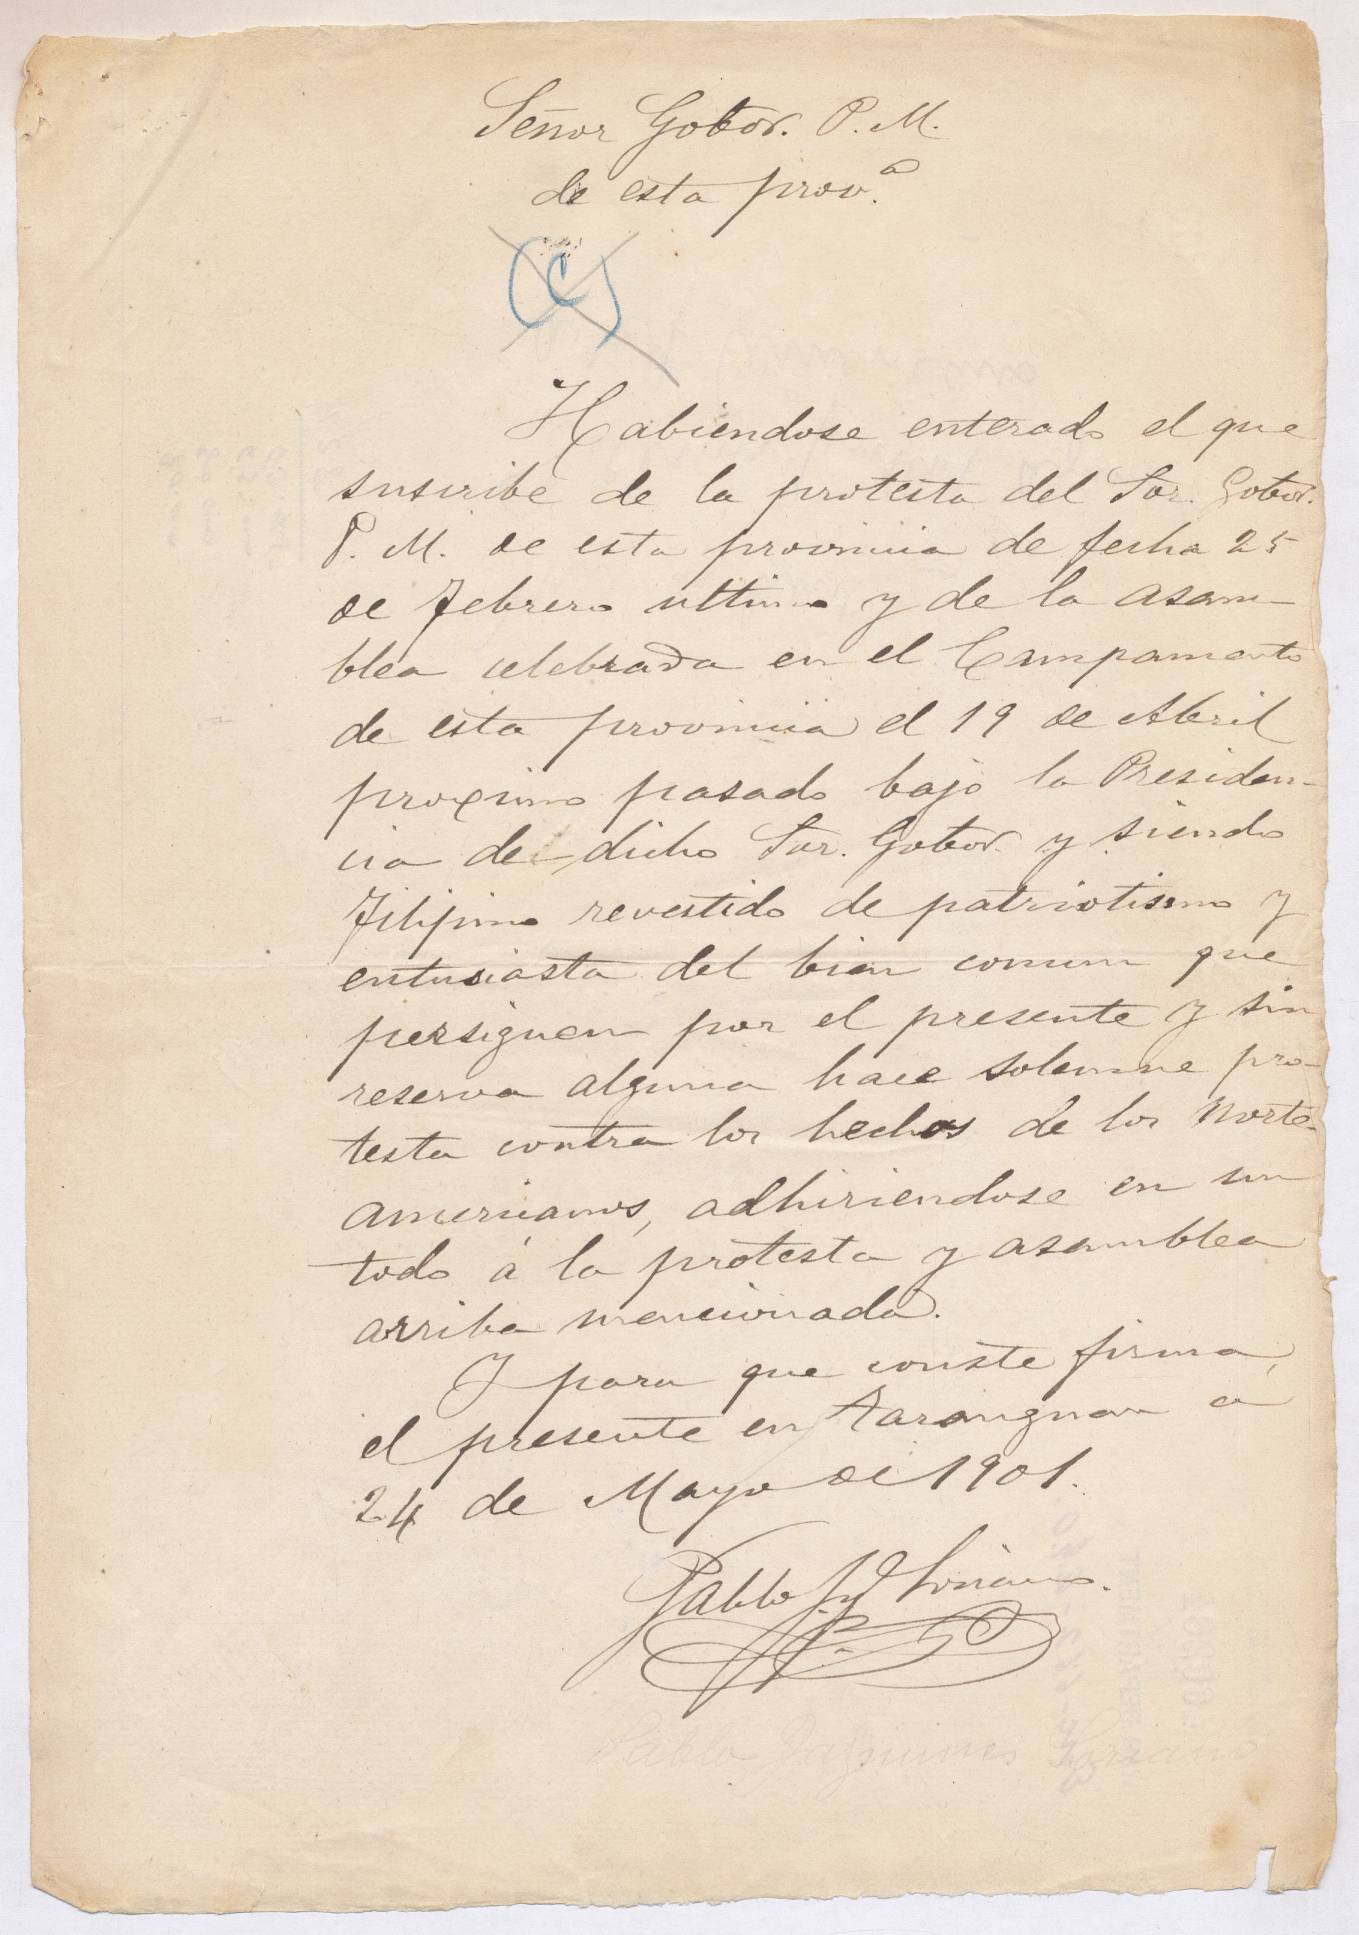 Señor Gobor. P. M.
de esta prov.ª
(C)
Habiendose enterado el que
suscribe de la protesta del Sor. Gobor.
P. M. de esta provincia de fecha 25
de Febrero ultimo y de la asam-
blea celebrada en el Campamento
de esta provincia el 19 de Abril
proximo pasado bajo la Presiden-
cia de dicho Sor. Gobor. y siendo
Filipino revestido de patriotismo y
entusiasta del bien comun que
persiguen por el presente y sin
reserva alguna hace solemne pro-
testa contra los hechos de los Norte-
americanos, adhiriendose en un
todo á la protesta y asamblea
arriba mencionada.
Y para que conste firma,
el presente en Tarangnan a
24 de Mayo de 1901.
Pablo J. y Soriano.
Pablo Soriano